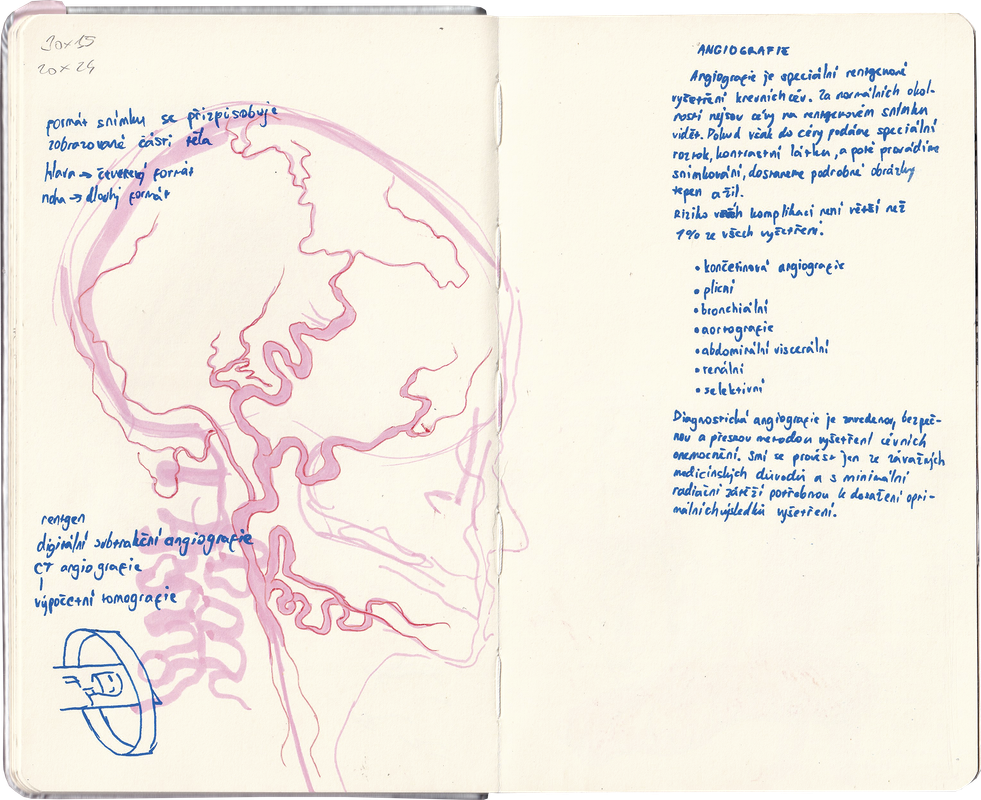 30x15
20x24
formát snímku se přizpůsobuje
zobrazované části těla
hlava → čtvercový formát
noha → dlouhý formát
rentgen
digitální subtrakční angiografie
CT angiografie
výpočetní tomografie
ANGIOGRAFIE
Angiografie je speciální rentgenové
vyšetření krevních cév. Za normálních okol-
ností nejsou cévy na rentgenovém snímku
vidět. Pokud však do cévy podáme speciální
roztok, kontrastní látku, a poté provádíme
snímkování, dostaneme podrobné obrázky
tepen a žil.
Riziko komplikací není větší než
1% ze všech vyšetření.
• končetinová angiografie
• plicní
• bronchiální
• aortografie
• abdominální viscerální
• renální
• selektivní
Diagnostická angiografie je zavedenou, bezpeč-
nou a přesnou metodou vyšetření cévních
onemocnění. Smí se provést jen ze závažných
medicínských důvodů a s minimální
radiační zátěží potřebnou k dosažení opti-
málních výsledků vyšetření.